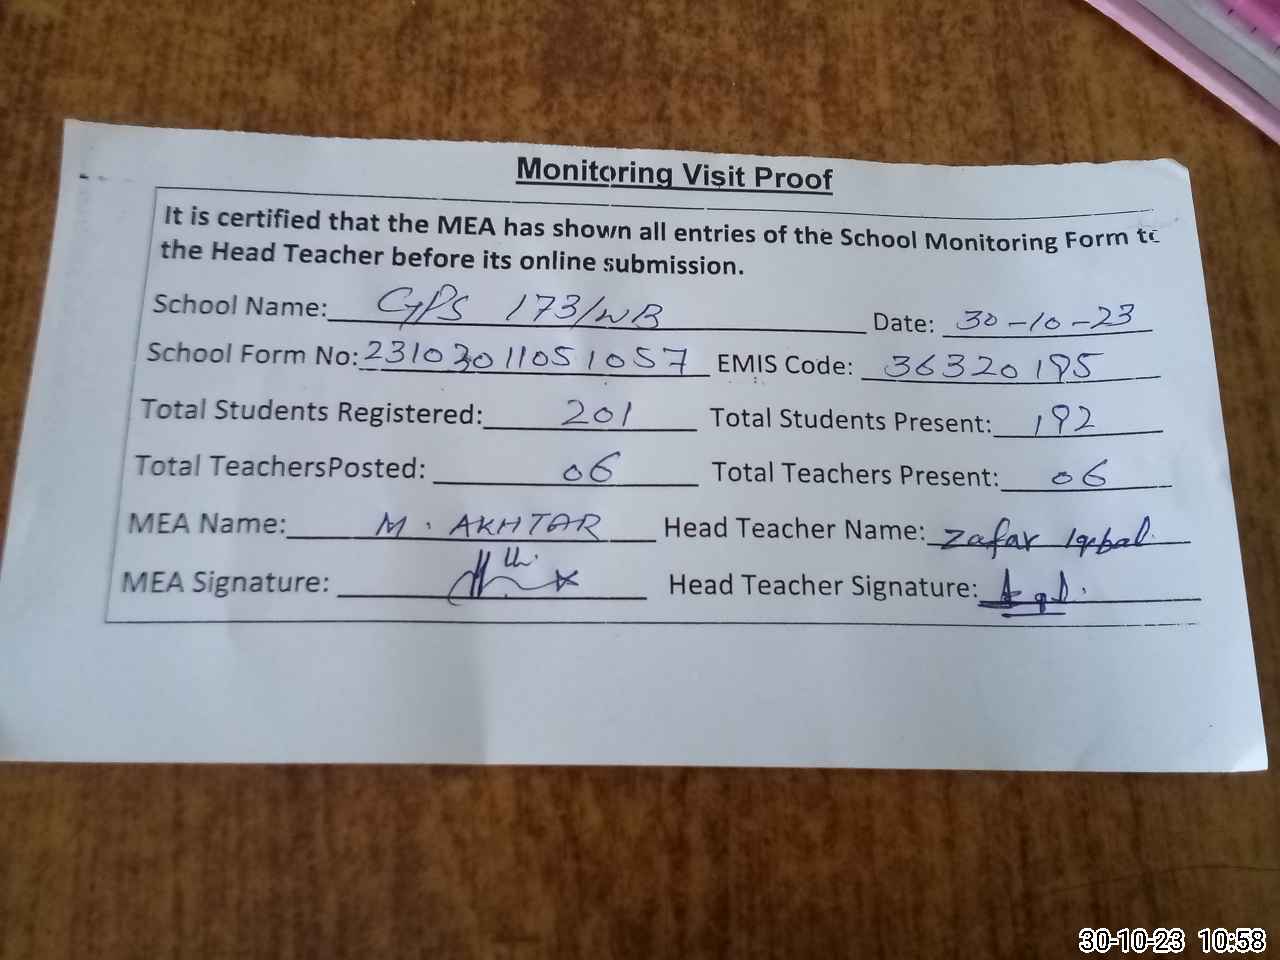 Monitoring Visit Proof
It is certified that the MEA has shown all entries of the School Monitoring Form to
the Head Teacher before its online submission.
School Name: GPS 173/WB Date: 30-10-23
School Form No: 23103011051057 EMIS Code: 36320195
Total Students Registered: 201 Total Students Present: 192
Total TeachersPosted: 06 Total Teachers Present: 06
MEA Name: M. AKHTAR Head Teacher Name: Zafar Iqbal
MEA Signature: Head Teacher Signature:
30-10-23 10:58